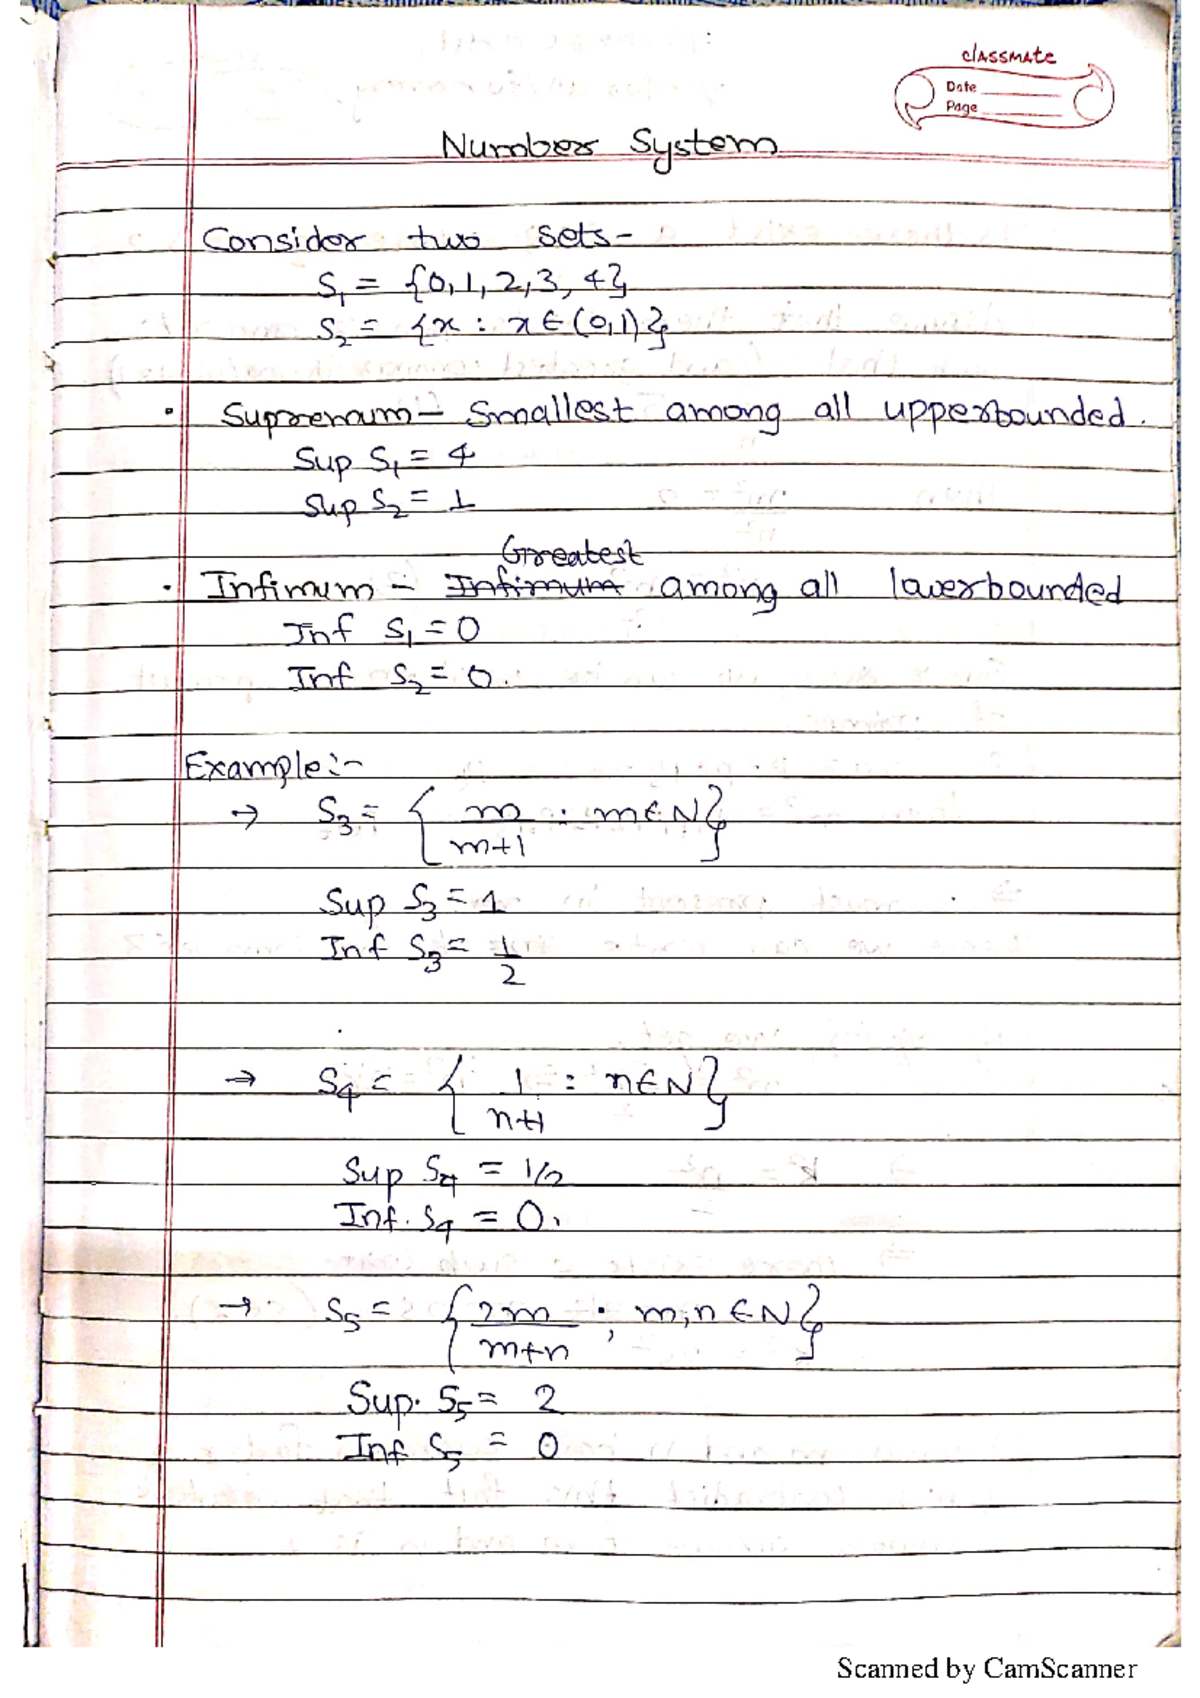 classmate
Date
Page
Number System
Consider two sets-
S₁ = {0, 1, 2, 3, 4}
S₂ = {x : x ∈ (0,1)}
• Supremum - Smallest among all upperbounded.
Sup S₁ = 4
Sup S₂ = 1
Greatest
• Infimum - Infimum among all lowerbounded
Inf S₁ = 0
Inf S₂ = 0.
Example:-
→ S₃ = { m/m+1 : m ∈ N}
Sup S₃ = 1
Inf S₃ = 1/2
→ S₄ = { 1/n+1 : n ∈ N}
Sup S₄ = 1/2
Inf. S₄ = 0.
→ S₅ = { 2m/m+n ; m,n ∈ N}
Sup. S₅ = 2
Inf S₅ = 0
Scanned by CamScanner